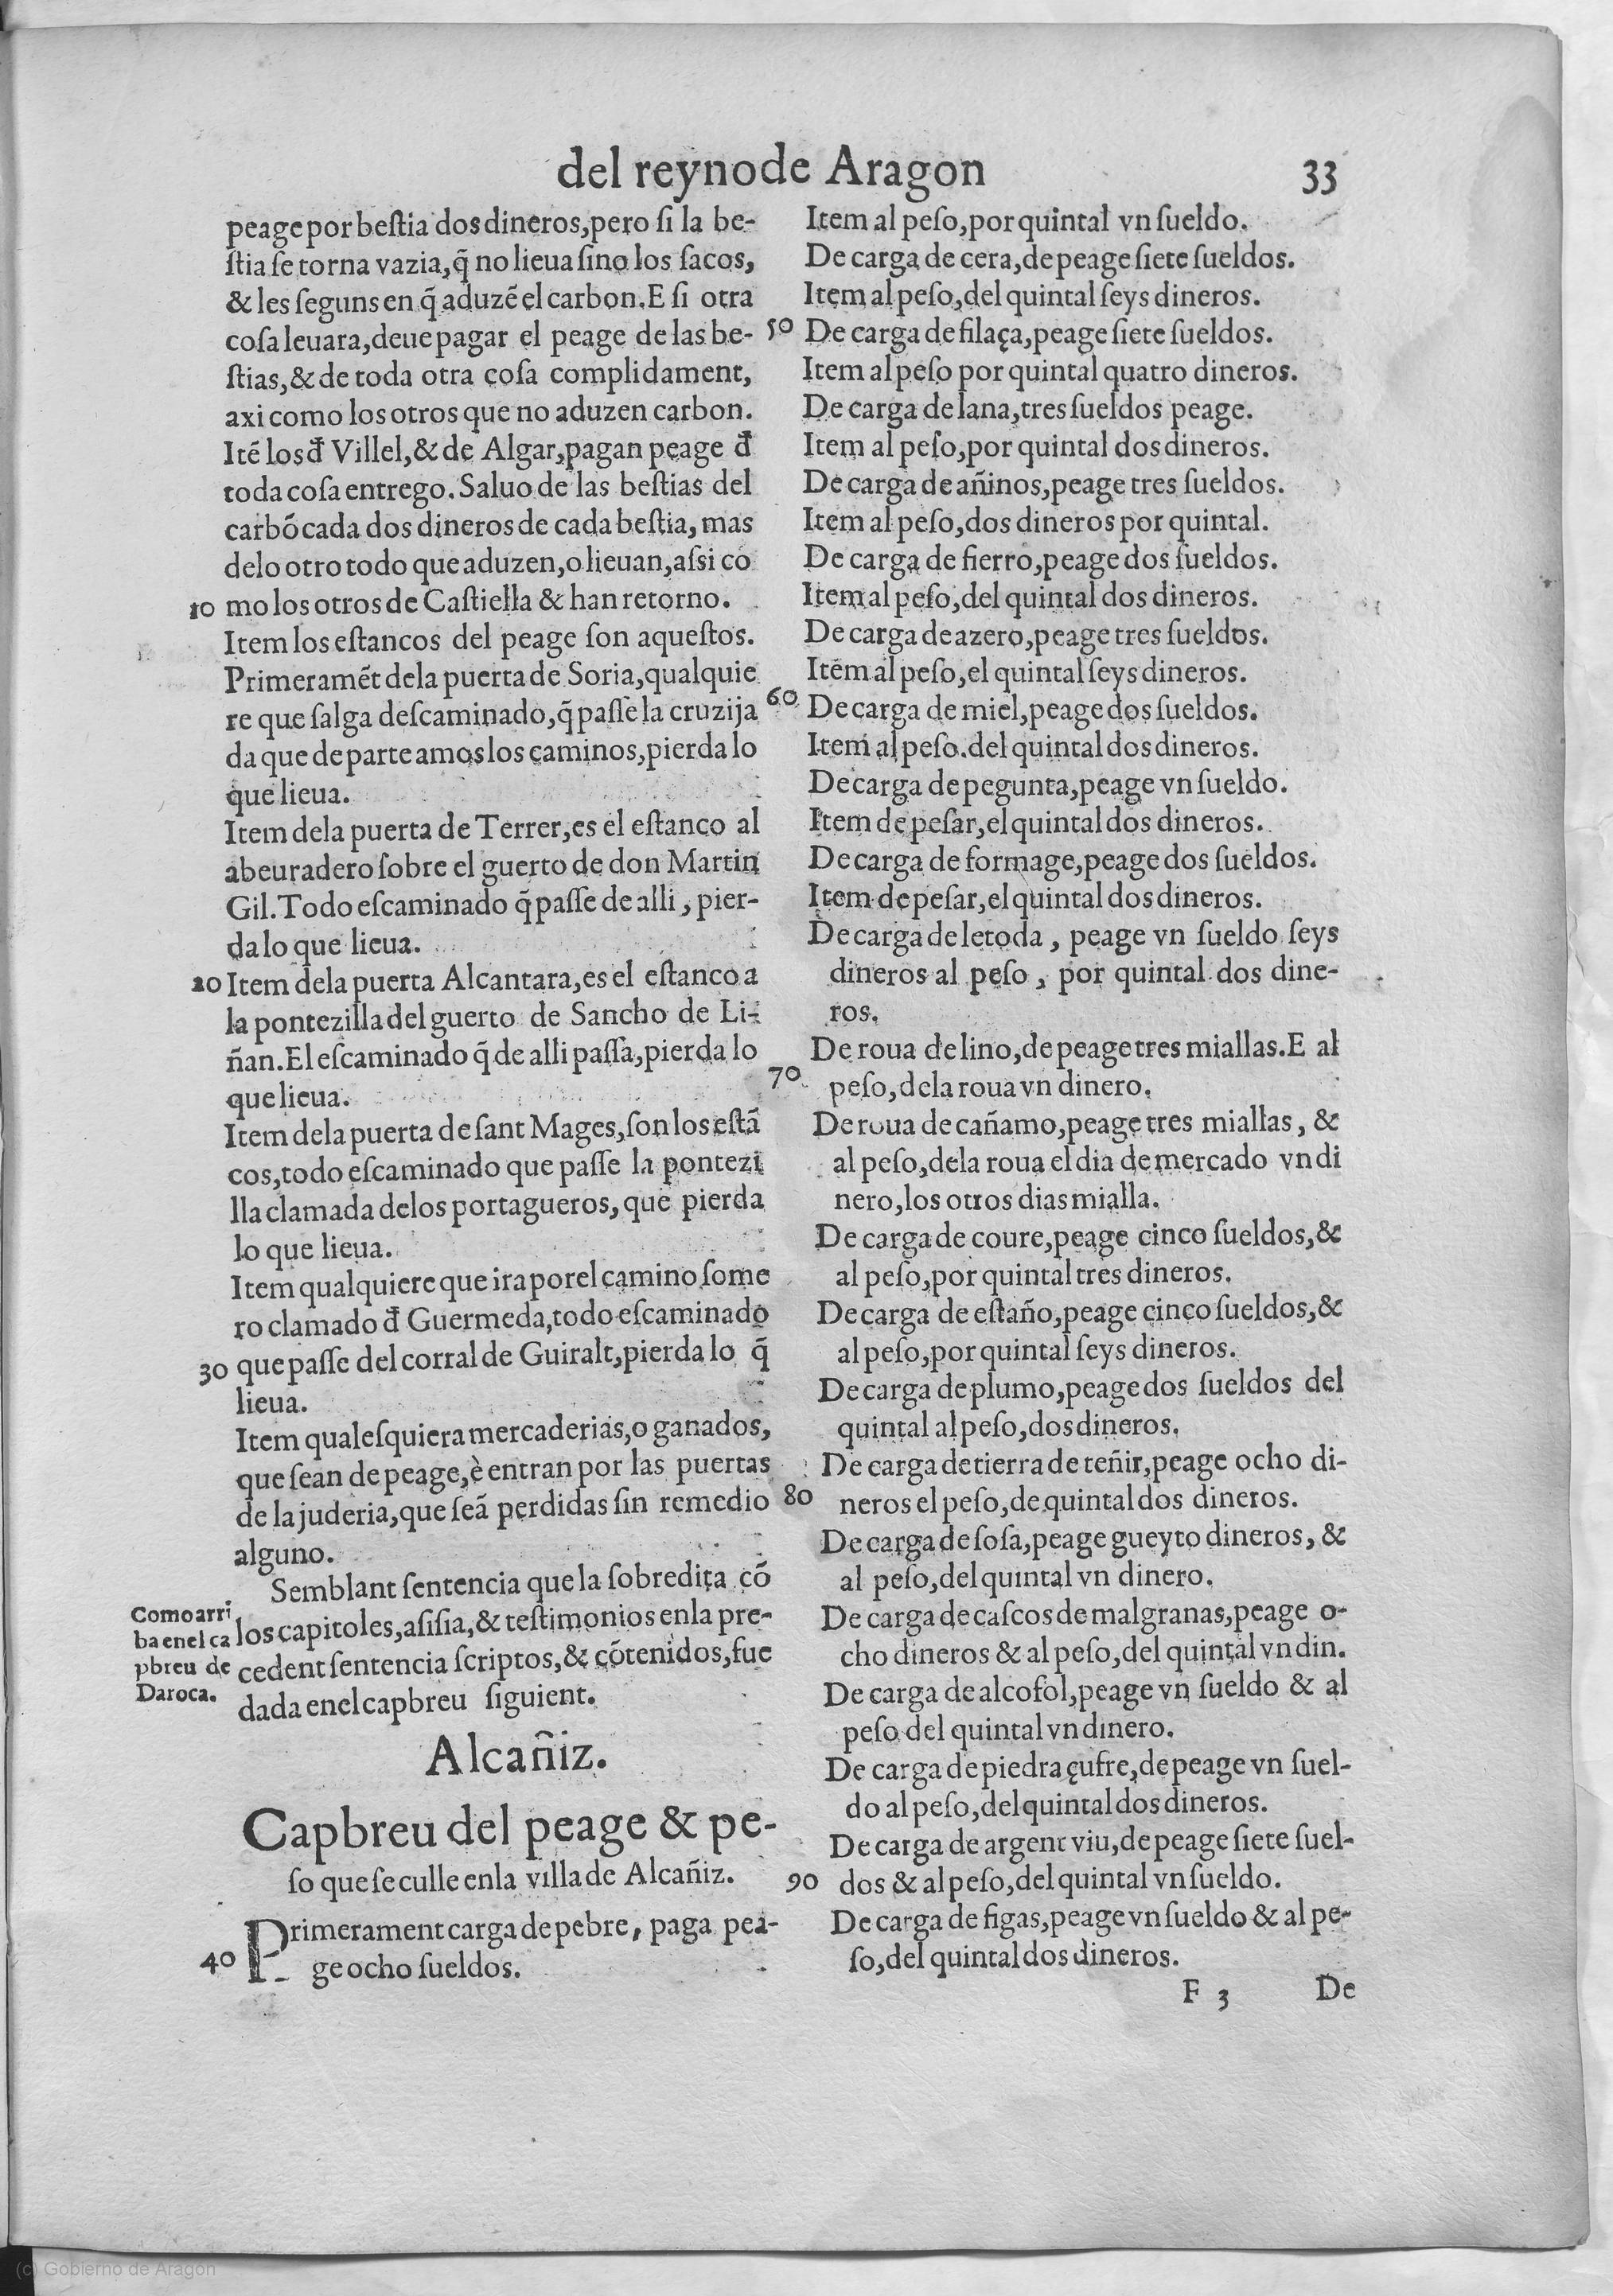 del reyno de Aragon 33
peage por bestia dos dineros, pero si la be-
stia se torna vazia, q̃ no lieua sino los sacos,
& les seguns en q̃ aduzẽ el carbon. E si otra
cosa leuara, deue pagar el peage de las be-
stias, & de toda otra cosa complidament,
axi como los otros que no aduzen carbon.
Itẽ los đ Villel, & de Algar, pagan peage đ
toda cosa entrego. Saluo de las bestias del
carbõ cada dos dineros de cada bestia, mas
delo otro todo que aduzen, o lieuan, assi co
10 mo los otros de Castiella & han retorno.
Item los estancos del peage son aquestos.
Primeramẽt dela puerta de Soria, qualquie
re que salga descaminado, q̃ passe la cruzija
da que departe amos los caminos, pierda lo
que lieua.
Item dela puerta de Terrer, es el estanco al
abeuradero sobre el guerto de don Martin
Gil. Todo escaminado q̃ passe de alli, pier-
da lo que lieua.
20 Item dela puerta Alcantara, es el estanco a
la pontezilla del guerto de Sancho de Li-
ñan. El escaminado q̃ de alli passa, pierda lo
que lieua.
Item dela puerta de sant Mages, son los estã
cos, todo escaminado que passe la pontezi
lla clamada delos portagueros, que pierda
lo que lieua.
Item qualquiere que ira por el camino some
ro clamado đ Guermeda, todo escaminado
30 que passe del corral de Guiralt, pierda lo q̃
lieua.
Item qualesquiera mercaderias, o ganados,
que sean de peage, è entran por las puertas
de la juderia, que seã perdidas sin remedio
alguno.
Semblant sentencia que la sobredita cõ
los capitoles, asisia, & testimonios enla pre-
cedent sentencia scriptos, & cõtenidos, fue
dada enel capbreu siguient.
Como arri
ba enel ca
pbreu de
Daroca.
Alcañiz.
Capbreu del peage & pe-
so que se culle enla villa de Alcañiz.
Primerament carga de pebre, paga pea-
40 ge ocho sueldos.
Item al peso, por quintal vn sueldo.
De carga de cera, de peage siete sueldos.
Item al peso, del quintal seys dineros.
50 De carga de filaça, peage siete sueldos.
Item al peso por quintal quatro dineros.
De carga de lana, tres sueldos peage.
Item al peso, por quintal dos dineros.
De carga de añinos, peage tres sueldos.
Item al peso, dos dineros por quintal.
De carga de fierro, peage dos sueldos.
Item al peso, del quintal dos dineros.
De carga de azero, peage tres sueldos.
Item al peso, el quintal seys dineros.
60 De carga de miel, peage dos sueldos.
Item al peso. del quintal dos dineros.
De carga de pegunta, peage vn sueldo.
Item de pesar, el quintal dos dineros.
De carga de formage, peage dos sueldos.
Item de pesar, el quintal dos dineros.
De carga de letoda, peage vn sueldo seys
dineros al peso, por quintal dos dine-
ros.
De roua de lino, de peage tres miallas. E al
70 peso, dela roua vn dinero.
De roua de cañamo, peage tres miallas, &
al peso, dela roua el dia de mercado vn di
nero, los otros dias mialla.
De carga de coure, peage cinco sueldos, &
al peso, por quintal tres dineros.
De carga de estaño, peage cinco sueldos, &
al peso, por quintal seys dineros.
De carga de plumo, peage dos sueldos del
quintal al peso, dos dineros.
De carga de tierra de teñir, peage ocho di-
80 neros el peso, de quintal dos dineros.
De carga de sosa, peage gueyto dineros, &
al peso, del quintal vn dinero.
De carga de cascos de malgranas, peage o-
cho dineros & al peso, del quintal vn din.
De carga de alcofol, peage vn sueldo & al
peso del quintal vn dinero.
De carga de piedra çufre, de peage vn suel-
do al peso, del quintal dos dineros.
De carga de argent viu, de peage siete suel-
90 dos & al peso, del quintal vn sueldo.
De carga de figas, peage vn sueldo & al pe-
so, del quintal dos dineros.
F 3 De
(c) Gobierno de Aragón